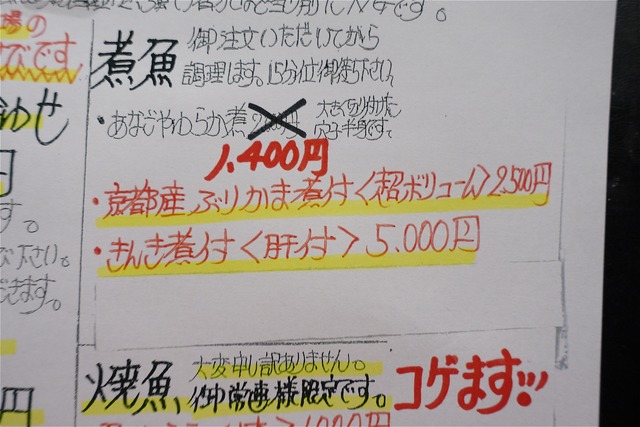 場の
びです
ゆせ
円
す。
下さい。
できます。
円
煮魚
御注文いただいてから
調理します。15分位御待ち下さい
・あなごやわらか煮
穴子半身です。
1,400円
・京都産ぶりかま煮付〈超ボリューム〉2,500円
・きんき煮付〈肝付〉5,000円
焼魚
大変申し訳ありません。
御常連様限定です。
コゲます!!